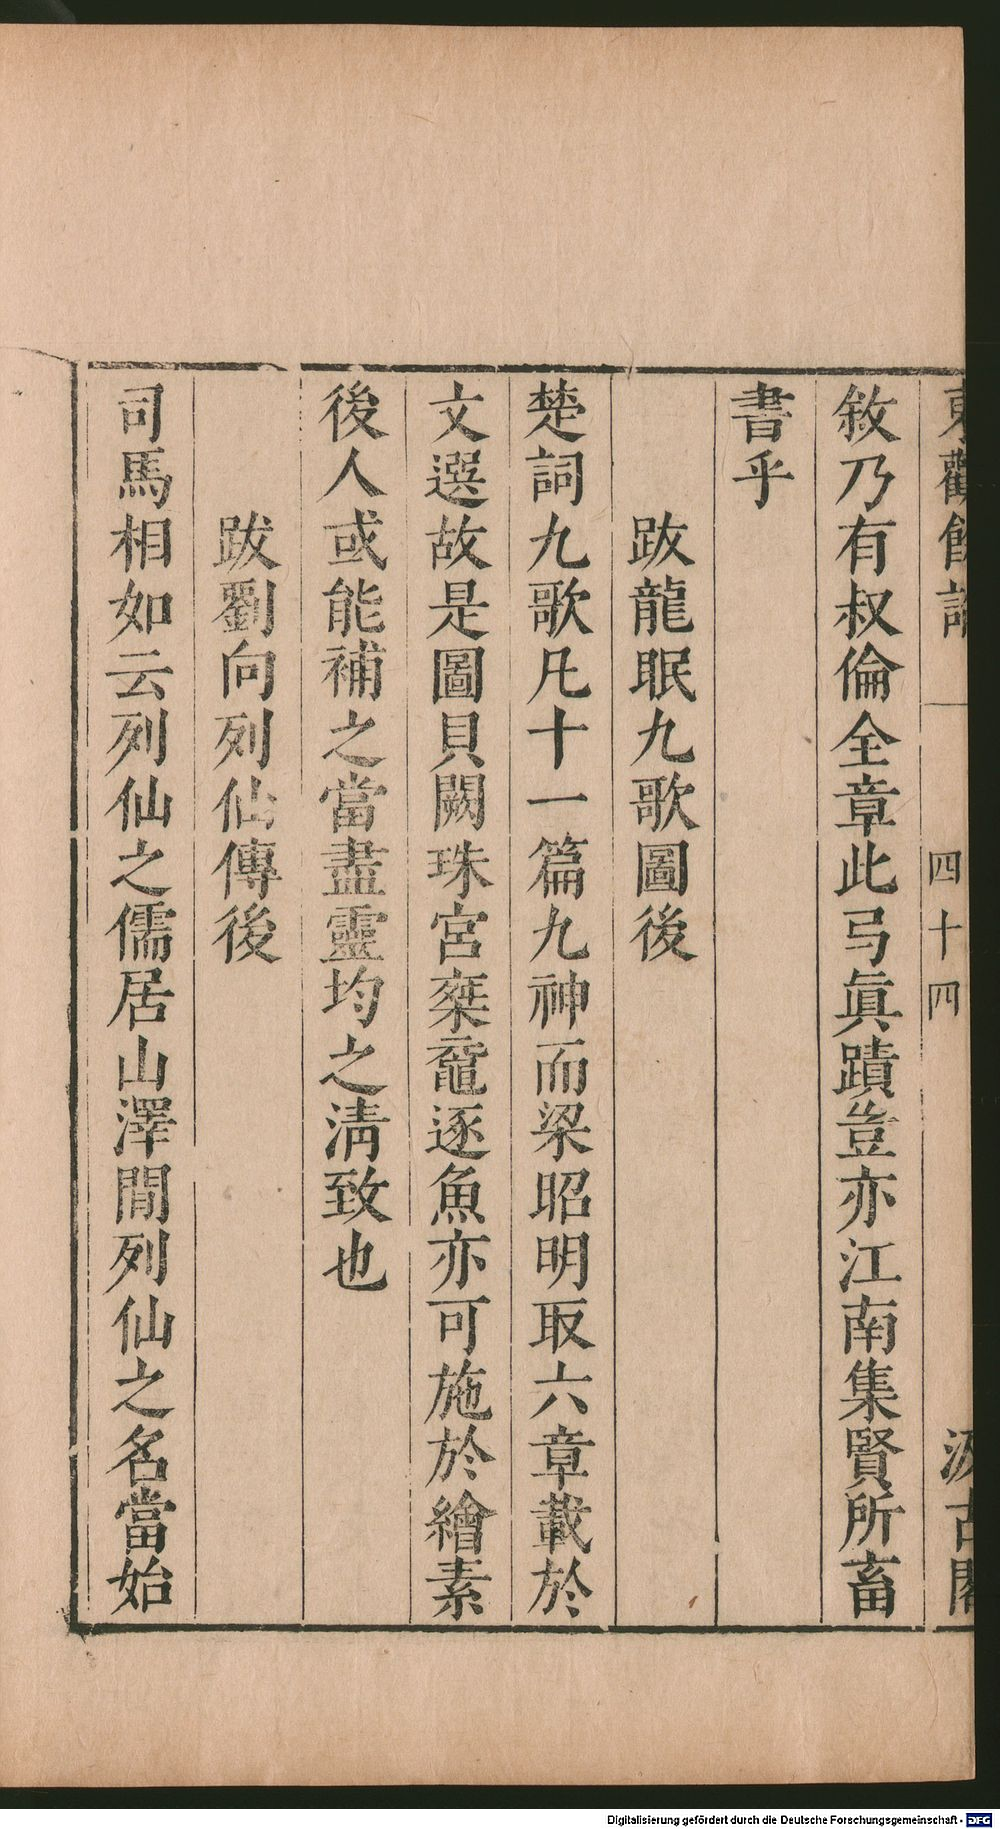 東觀餘論
四十四
汲古閣
敘乃有叔倫全章此弓眞蹟豈亦江南集賢所畜
書乎
跋龍眠九歌圖後
楚詞九歌凡十一篇九神而梁昭明取六章載於
文選故是圖貝闕珠宮椉黿逐魚亦可施於繪素
後人或能補之當盡靈均之淸致也
跋劉向列仙傳後
司馬相如云列仙之儒居山澤間列仙之名當始
Digitalisierung gefördert durch die Deutsche Forschungsgemeinschaft - DFG